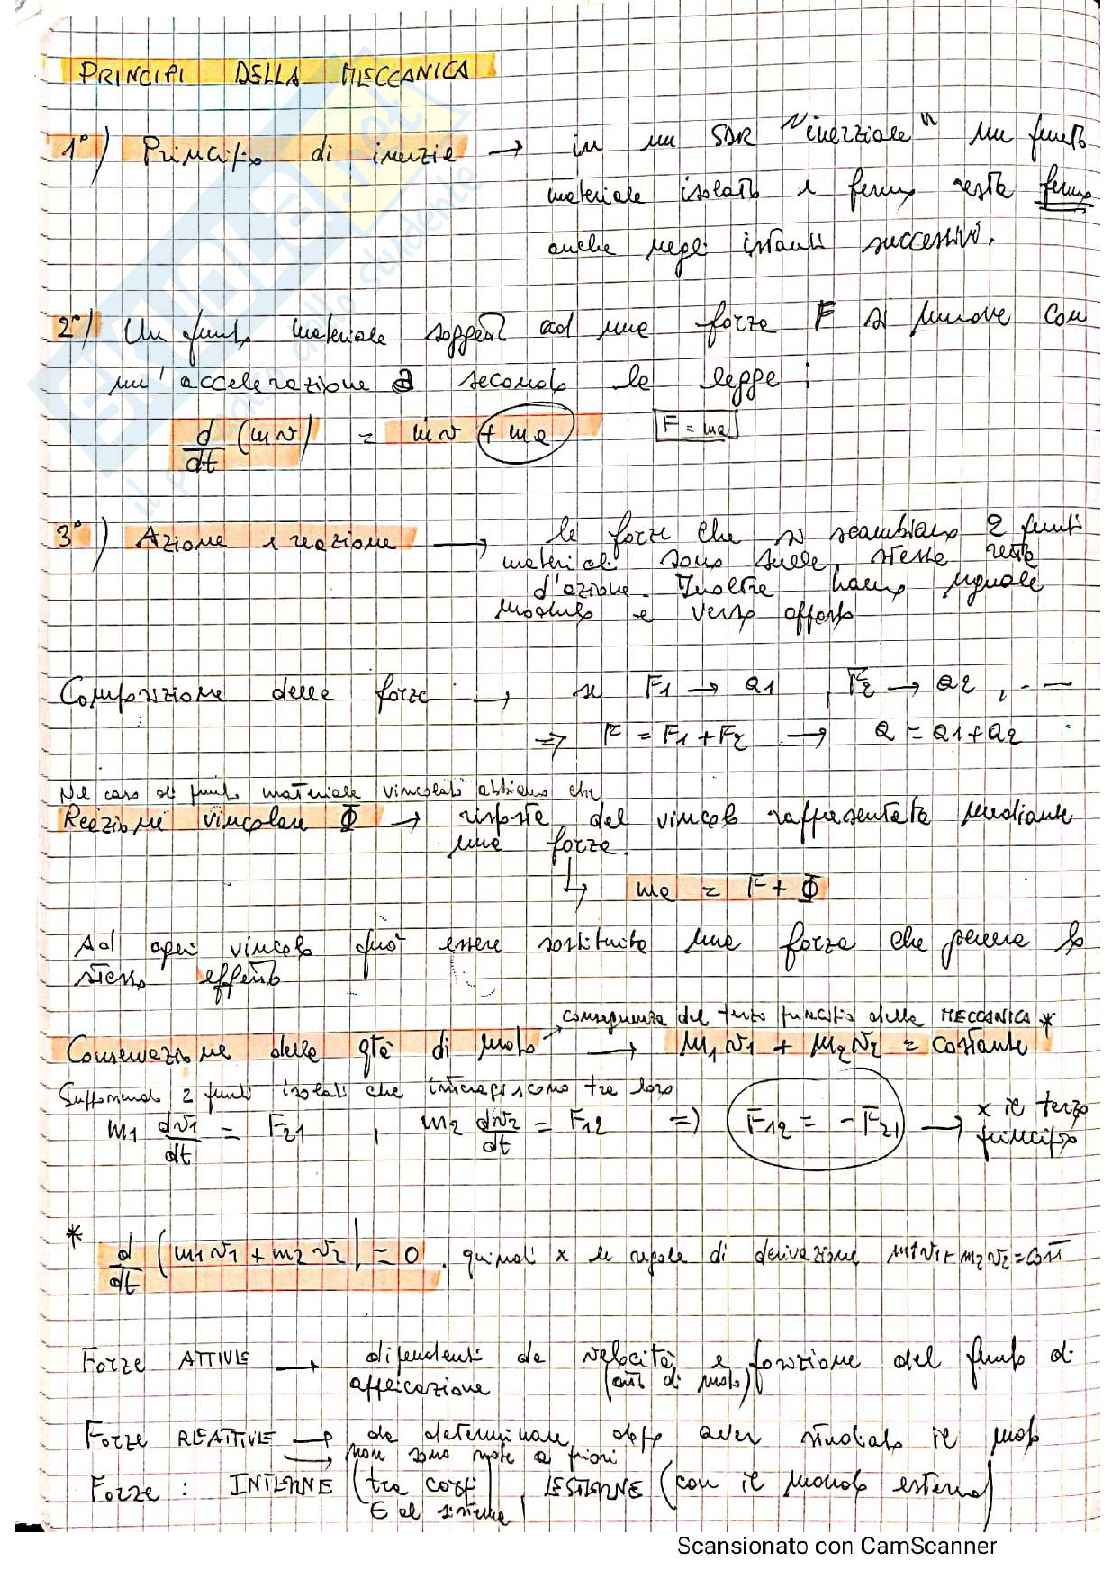 PRINCIPI DELLA MECCANICA
1°) Principio di inerzia → in un SDR "inerziale" un punto
materiale isolato e fermo resta fermo
anche negli istanti successivi.
2°) Un punto materiale soggetto ad una forza F si muove con
un'accelerazione a secondo la legge:
d/dt (mv) = ṁv + ma F = ma
3°) Azione e reazione → le forze che si scambiano 2 punti
materiali sono sulle stesse rette
d'azione. Inoltre hanno uguale
modulo e verso opposto
Composizione delle forze → se F1 → a1 , F2 → a2 , . —
⇒ F = F1 + F2 → a = a1+a2
Nel caso di punto materiale vincolati abbiamo che
Reazioni vincolari Φ → risposta del vincolo rappresentata mediante
una forza.
↳ ma = F + Φ
Ad ogni vincolo può essere sostituita una forza che genera lo
stesso effetto
conseguenza del terzo principio della MECCANICA *
Conservazione della qtà di moto → m1 v1 + m2 v2 = costante
Supponendo 2 punti isolati che interagiscono tra loro
m1 dv1/dt = F21 , m2 dv2/dt = F12 => F12 = -F21 → x il terzo
principio
* d/dt (m1v1 + m2v2) = 0 , quindi x le regole di derivazione, m1v1+m2v2=cost
Forze ATTIVE → dipendenti da velocità e posizione del punto di
applicazione (atti di moto)
Forze REATTIVE → da determinare dopo aver studiato il moto
→ non sono note a priori
Forze : INTERNE (tra corpi , ESTERNE (con il mondo esterno)
∈ al sistema)
Scansionato con CamScanner